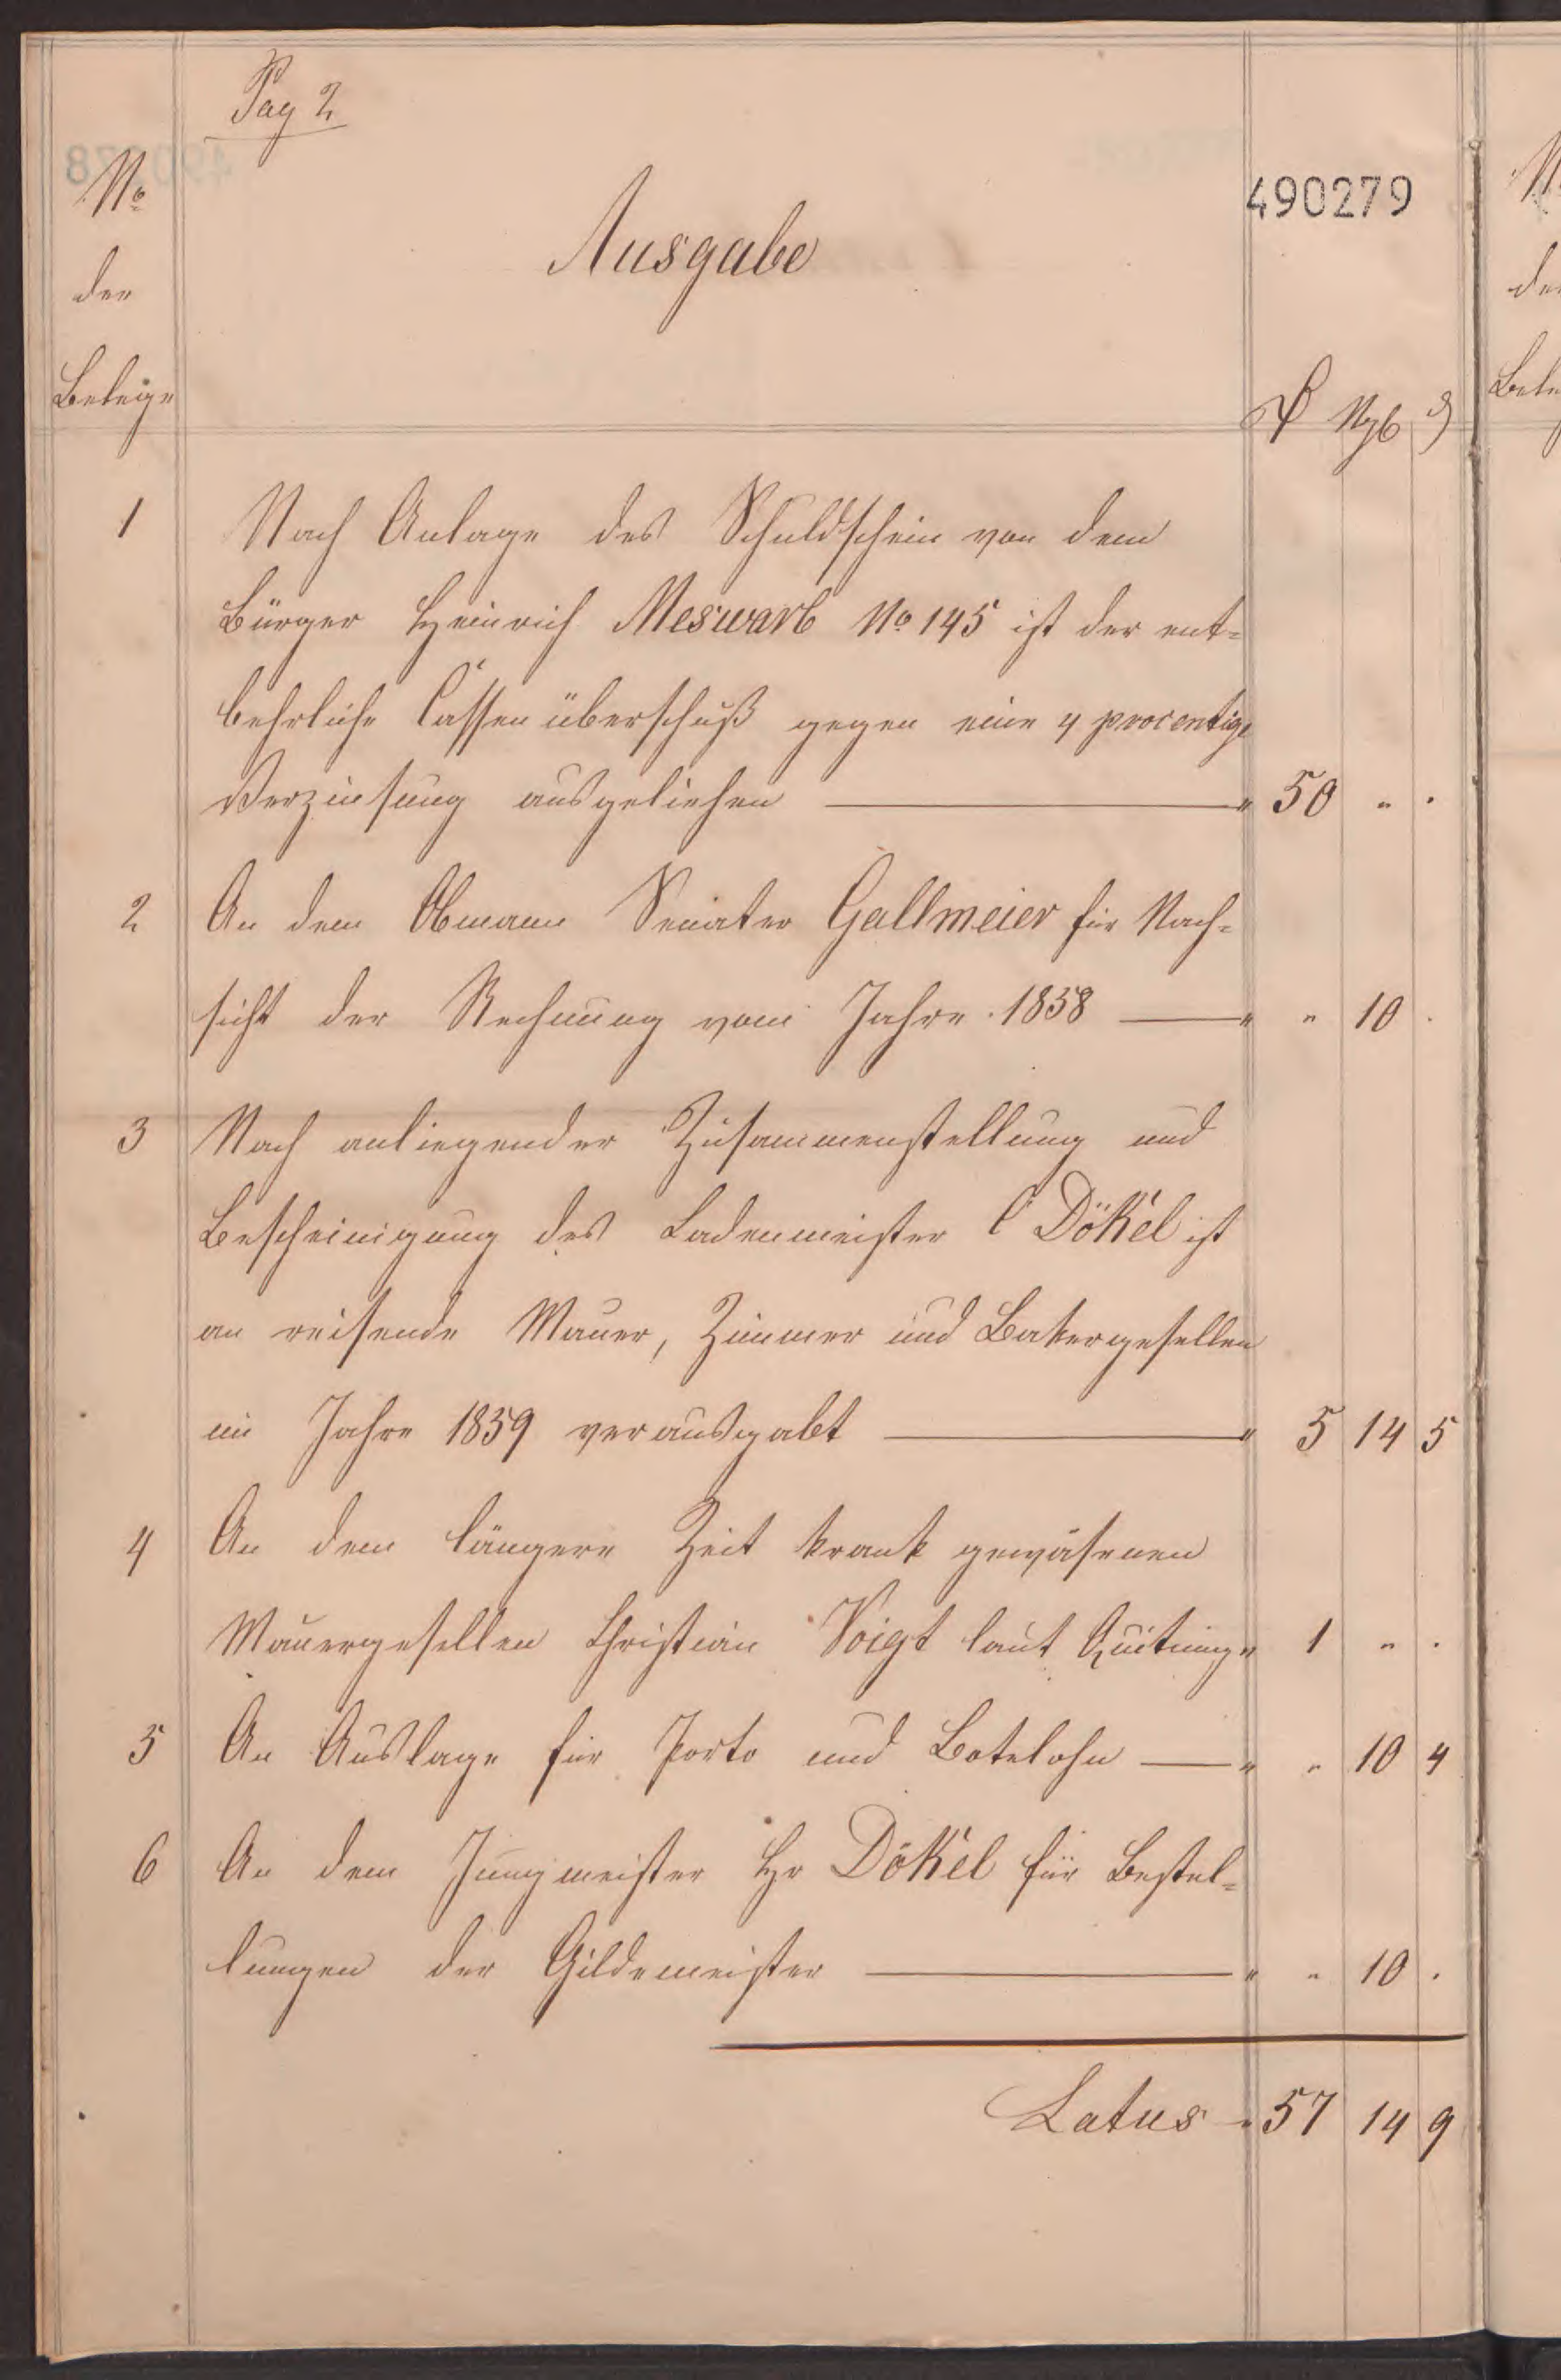 Pag 2
No
der
Belege
490279
Ausgabe
₰ Ngb ₰
1 Nach Anlage des Schuldschein von dem
Bürger Heinrich Meswarb No 145 ist der ent=
behrliche Cassenüberschuß gegen eine 4 procentige
Verzinsung ausgeliehen — " 50 " .
2 An dem Obmann Senater Gallmeier für Nach=
sicht der Rechnung vom Jahre 1858 — " " 10 .
3 Nach anliegender Zusammenstellung und
Bescheinigung des Ladenmeister C Dökel ist
an reisende Mauer, Zimmer und Bakergesellen
im Jahre 1859 verausgabt — " 5 14 5
4 An dem längere Zeit krank gewäsenen
Mauergesellen Christian Voigt laut Quitung " 1 " .
5 An Auslage für Porto und Botelohn — " " 10 4
6 An dem Jungmeister Hr Dökel für Bestel=
lungen der Gildemeister — " " 10 .
Latus - 57 14 9